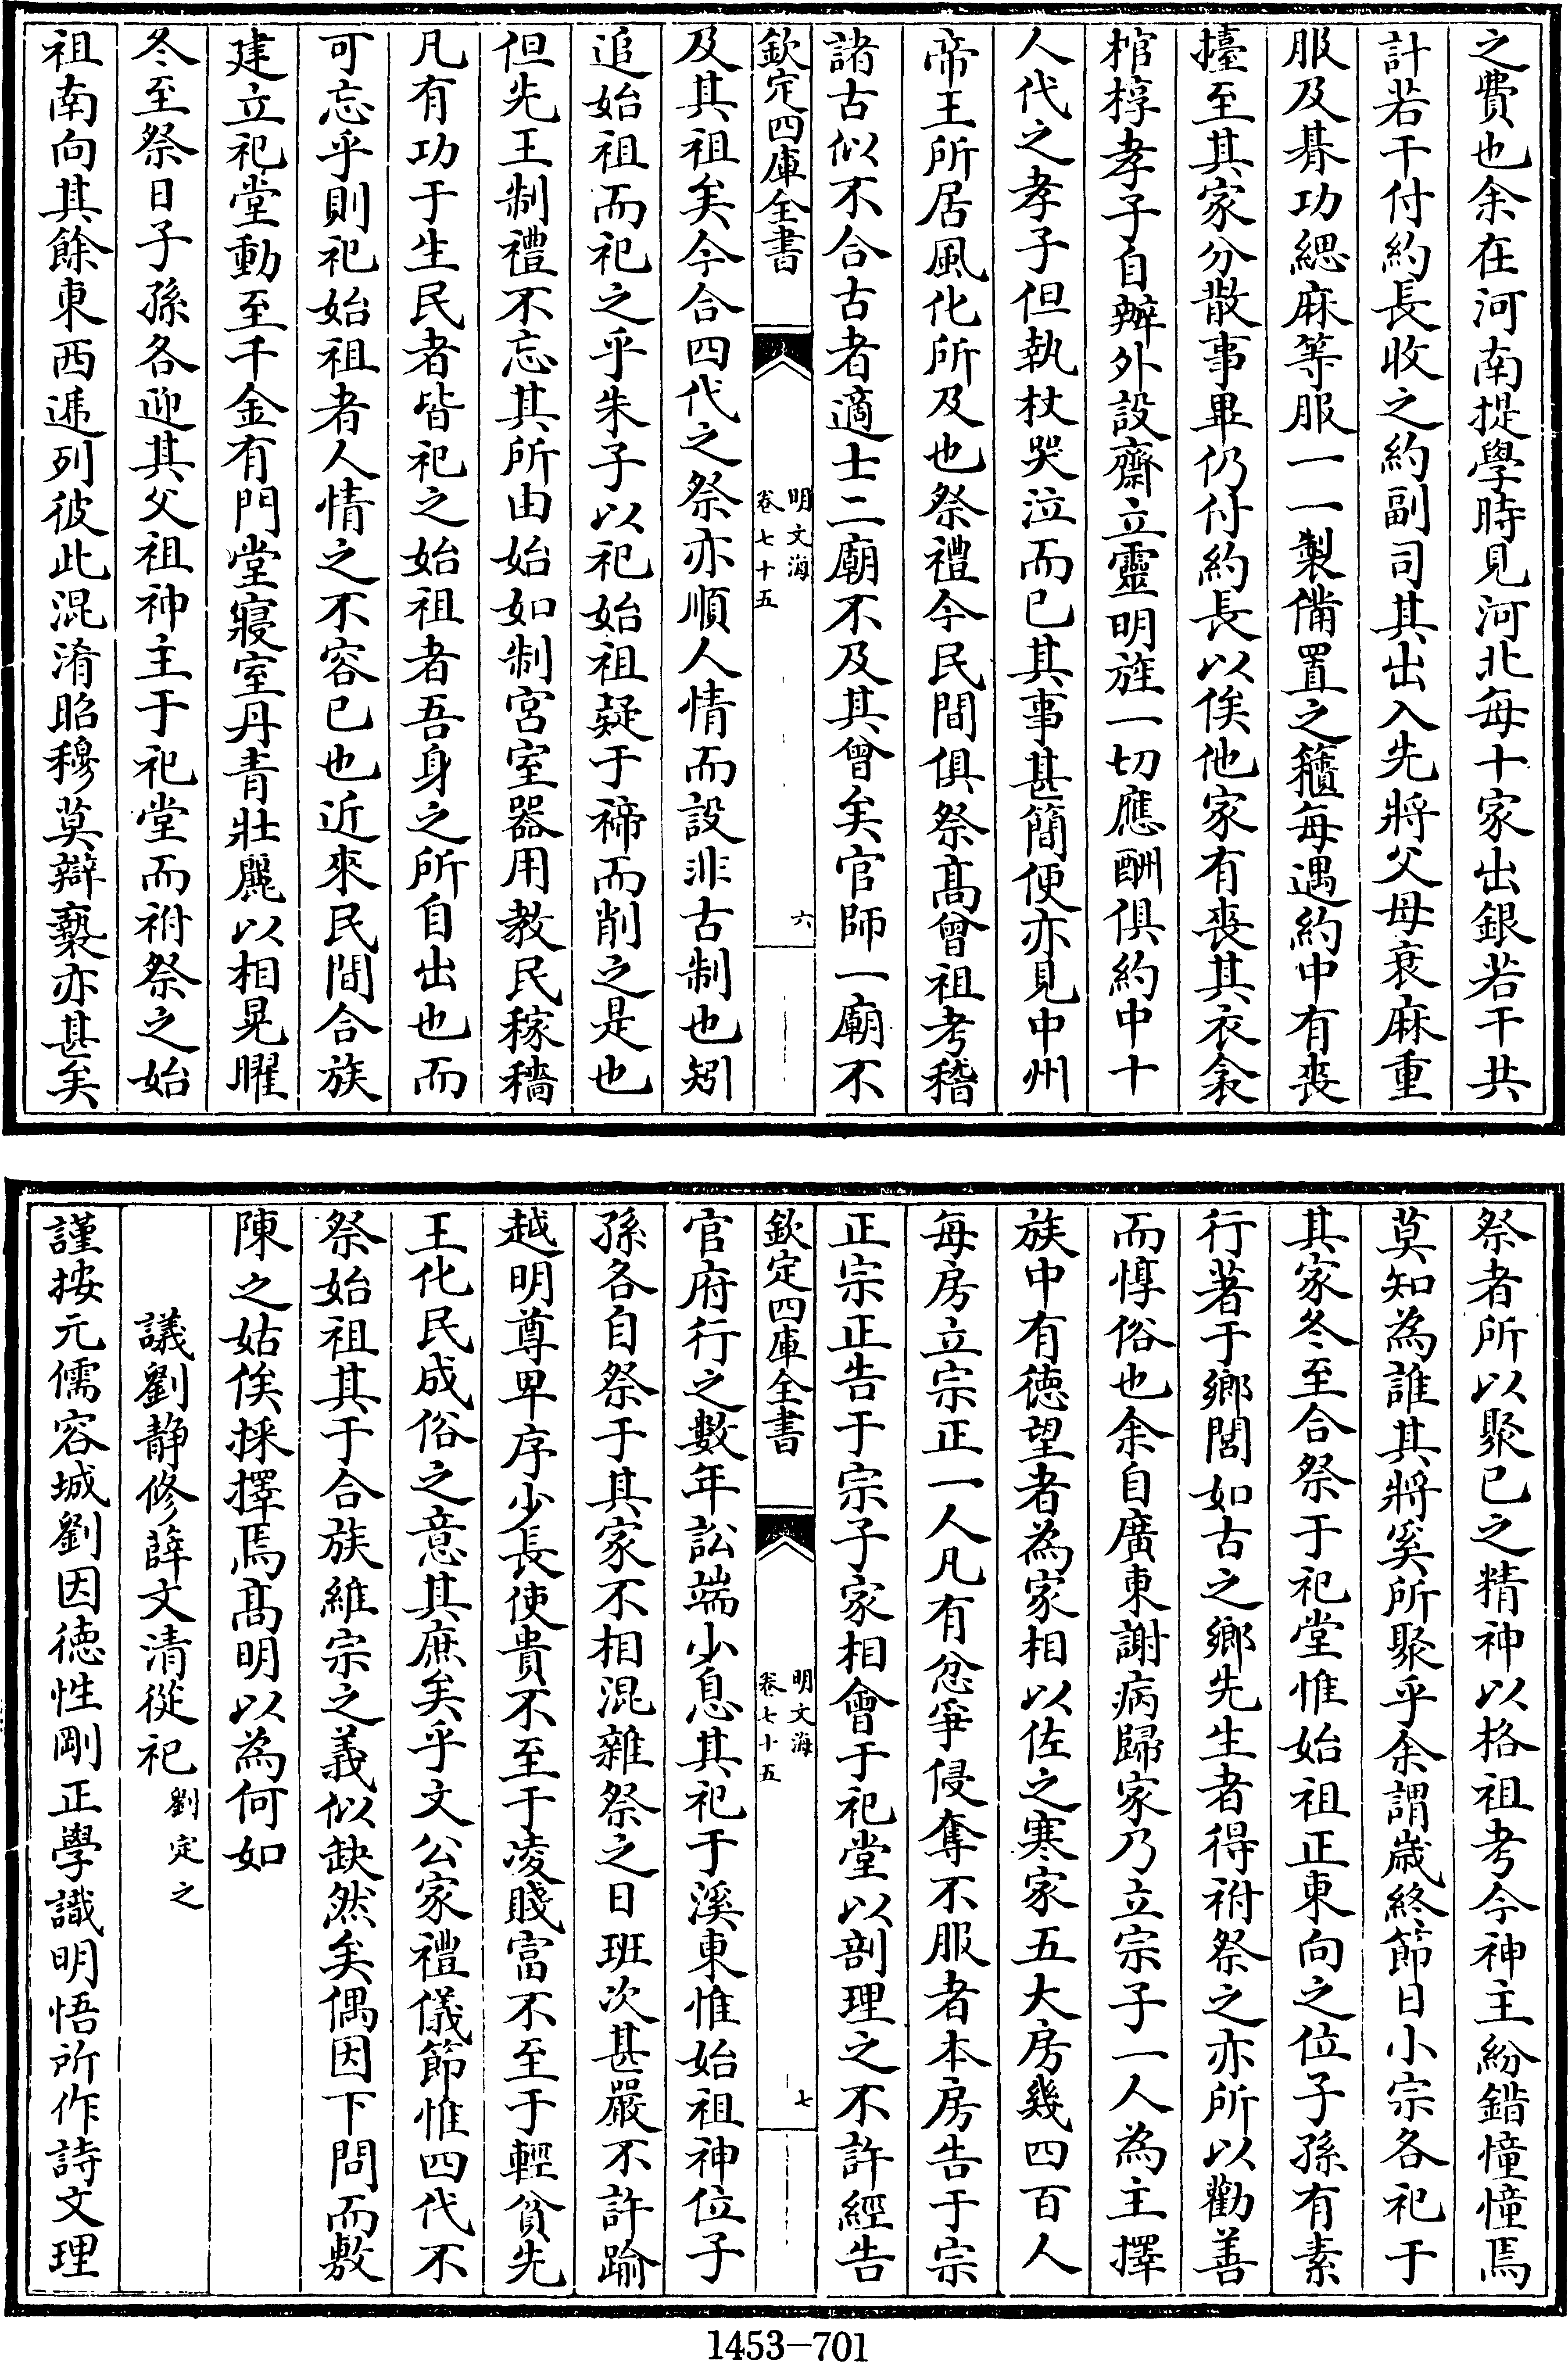 之費也余在河南提學時見河北每十家出銀若干共
計若干付約長收之約副司其出入先將父母衰麻重
服及朞功緦麻等服一一製備置之籄每遇約中有喪
擡至其家分散事畢仍付約長以俟他家有喪其衣衾
棺椁孝子自辦外設齋立靈明旌一切應酬俱約中十
人代之孝子但執杖哭泣而已其事甚簡便亦見中州
帝王所居風化所及也祭禮今民間俱祭髙曾祖考稽
諸古似不合古者適士二廟不及其曾矣官師一廟不
欽定四庫全書
明文海
卷七十五
六
及其祖矣今合四代之祭亦順人情而設非古制也矧
追始祖而祀之乎朱子以祀始祖疑于禘而削之是也
但先王制禮不忘其所由始如制宮室器用教民稼穡
凡有功于生民者皆祀之始祖者吾身之所自出也而
可忘乎則祀始祖者人情之不容已也近來民間合族
建立祀堂動至千金有門堂寢室丹青壯麗以相晃曜
冬至祭日子孫各迎其父祖神主于祀堂而祔祭之始
祖南向其餘東西遞列彼此混淆昭穆莫辯褻亦甚矣
祭者所以聚已之精神以格祖考今神主紛錯憧憧焉
莫知為誰其將奚所聚乎余謂歲終節日小宗各祀于
其家冬至合祭于祀堂惟始祖正東向之位子孫有素
行著于鄉閭如古之鄉先生者得祔祭之亦所以勸善
而惇俗也余自廣東謝病歸家乃立宗子一人為主擇
族中有德望者為家相以佐之寒家五大房幾四百人
每房立宗正一人凡有忿爭侵奪不服者本房告于宗
正宗正告于宗子家相會于祀堂以剖理之不許經告
欽定四庫全書
明文海
卷七十五
七
官府行之數年訟端少息其祀于溪東惟始祖神位子
孫各自祭于其家不相混雜祭之日班次甚嚴不許踰
越明尊卑序少長使貴不至于凌賤富不至于輕貧先
王化民成俗之意其庶矣乎文公家禮儀節惟四代不
祭始祖其于合族維宗之義似缺然矣偶因下問而敷
陳之姑俟採擇焉髙明以為何如
議劉靜修薛文清從祀 劉定之
謹按元儒容城劉因德性剛正學識明悟所作詩文理
1453-701